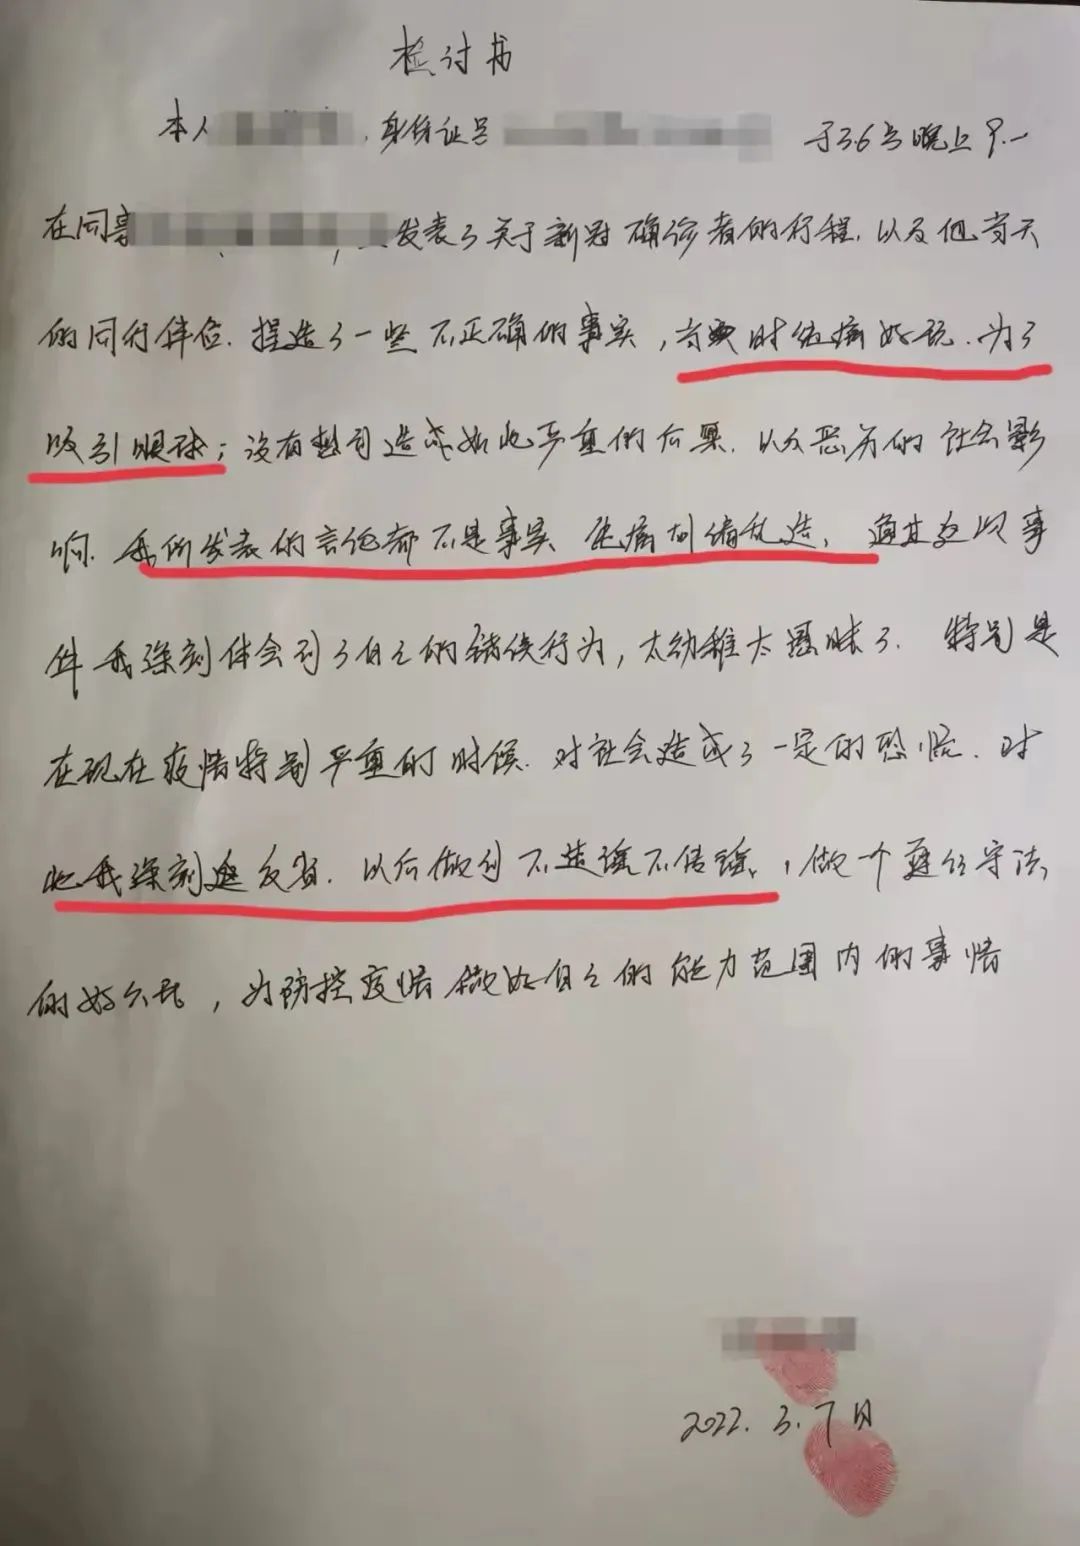 检讨书
本人 ,身份证号 于3.6号晚上9.
在同事 发表了关于新冠确诊者的行程.以及他当天
的同行伴侣.捏造了一些不正确的事实,当时纯属好玩.为了
吸引眼球;没有想到造成如此严重的后果.以及恶劣的社会影
响.我所发表的言论都不是事实 纯属胡编乱造、通过这次事
件我深刻体会到了自己的错误行为,太幼稚太愚昧了.特别是
在现在疫情特别严重的时候.对社会造成了一定的恐慌.对
此我深刻 反省.以后做到不造谣不传谣,做一个遵纪守法
的好公民,为防控疫情做好自己的能力范围内的事情
2022.3.7日